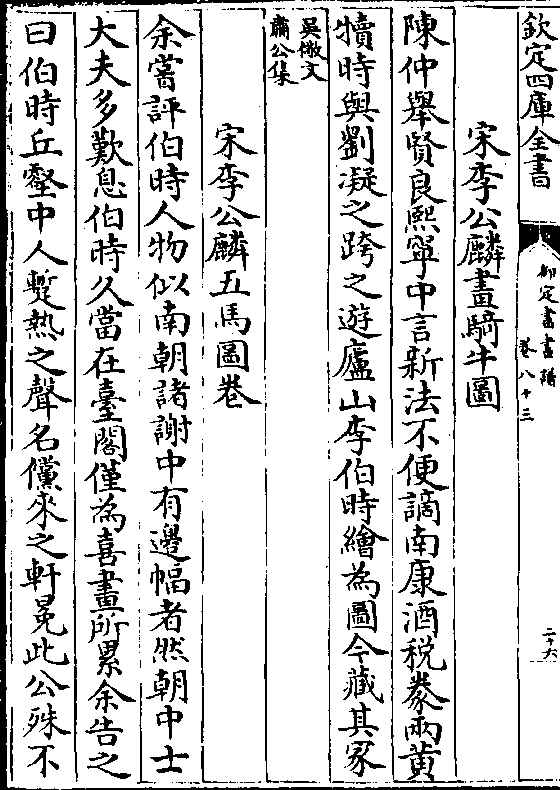 欽定四庫全書
御定書畫譜
卷八十三
二十六
宋李公麟畫騎牛圖
陳仲舉賢良熙寧中言新法不便謫南康酒税豢兩黄
犢時與劉凝之跨之遊廬山李伯時繪為圖今藏其冢
吳儆文
肅公集
宋李公麟五馬圖卷
余嘗評伯時人物似南朝諸謝中有邊幅者然朝中士
大夫多歎息伯時久當在臺閣僅為喜畫所累余告之
曰伯時丘壑中人蹔熱之聲名儻來之軒冕此公殊不